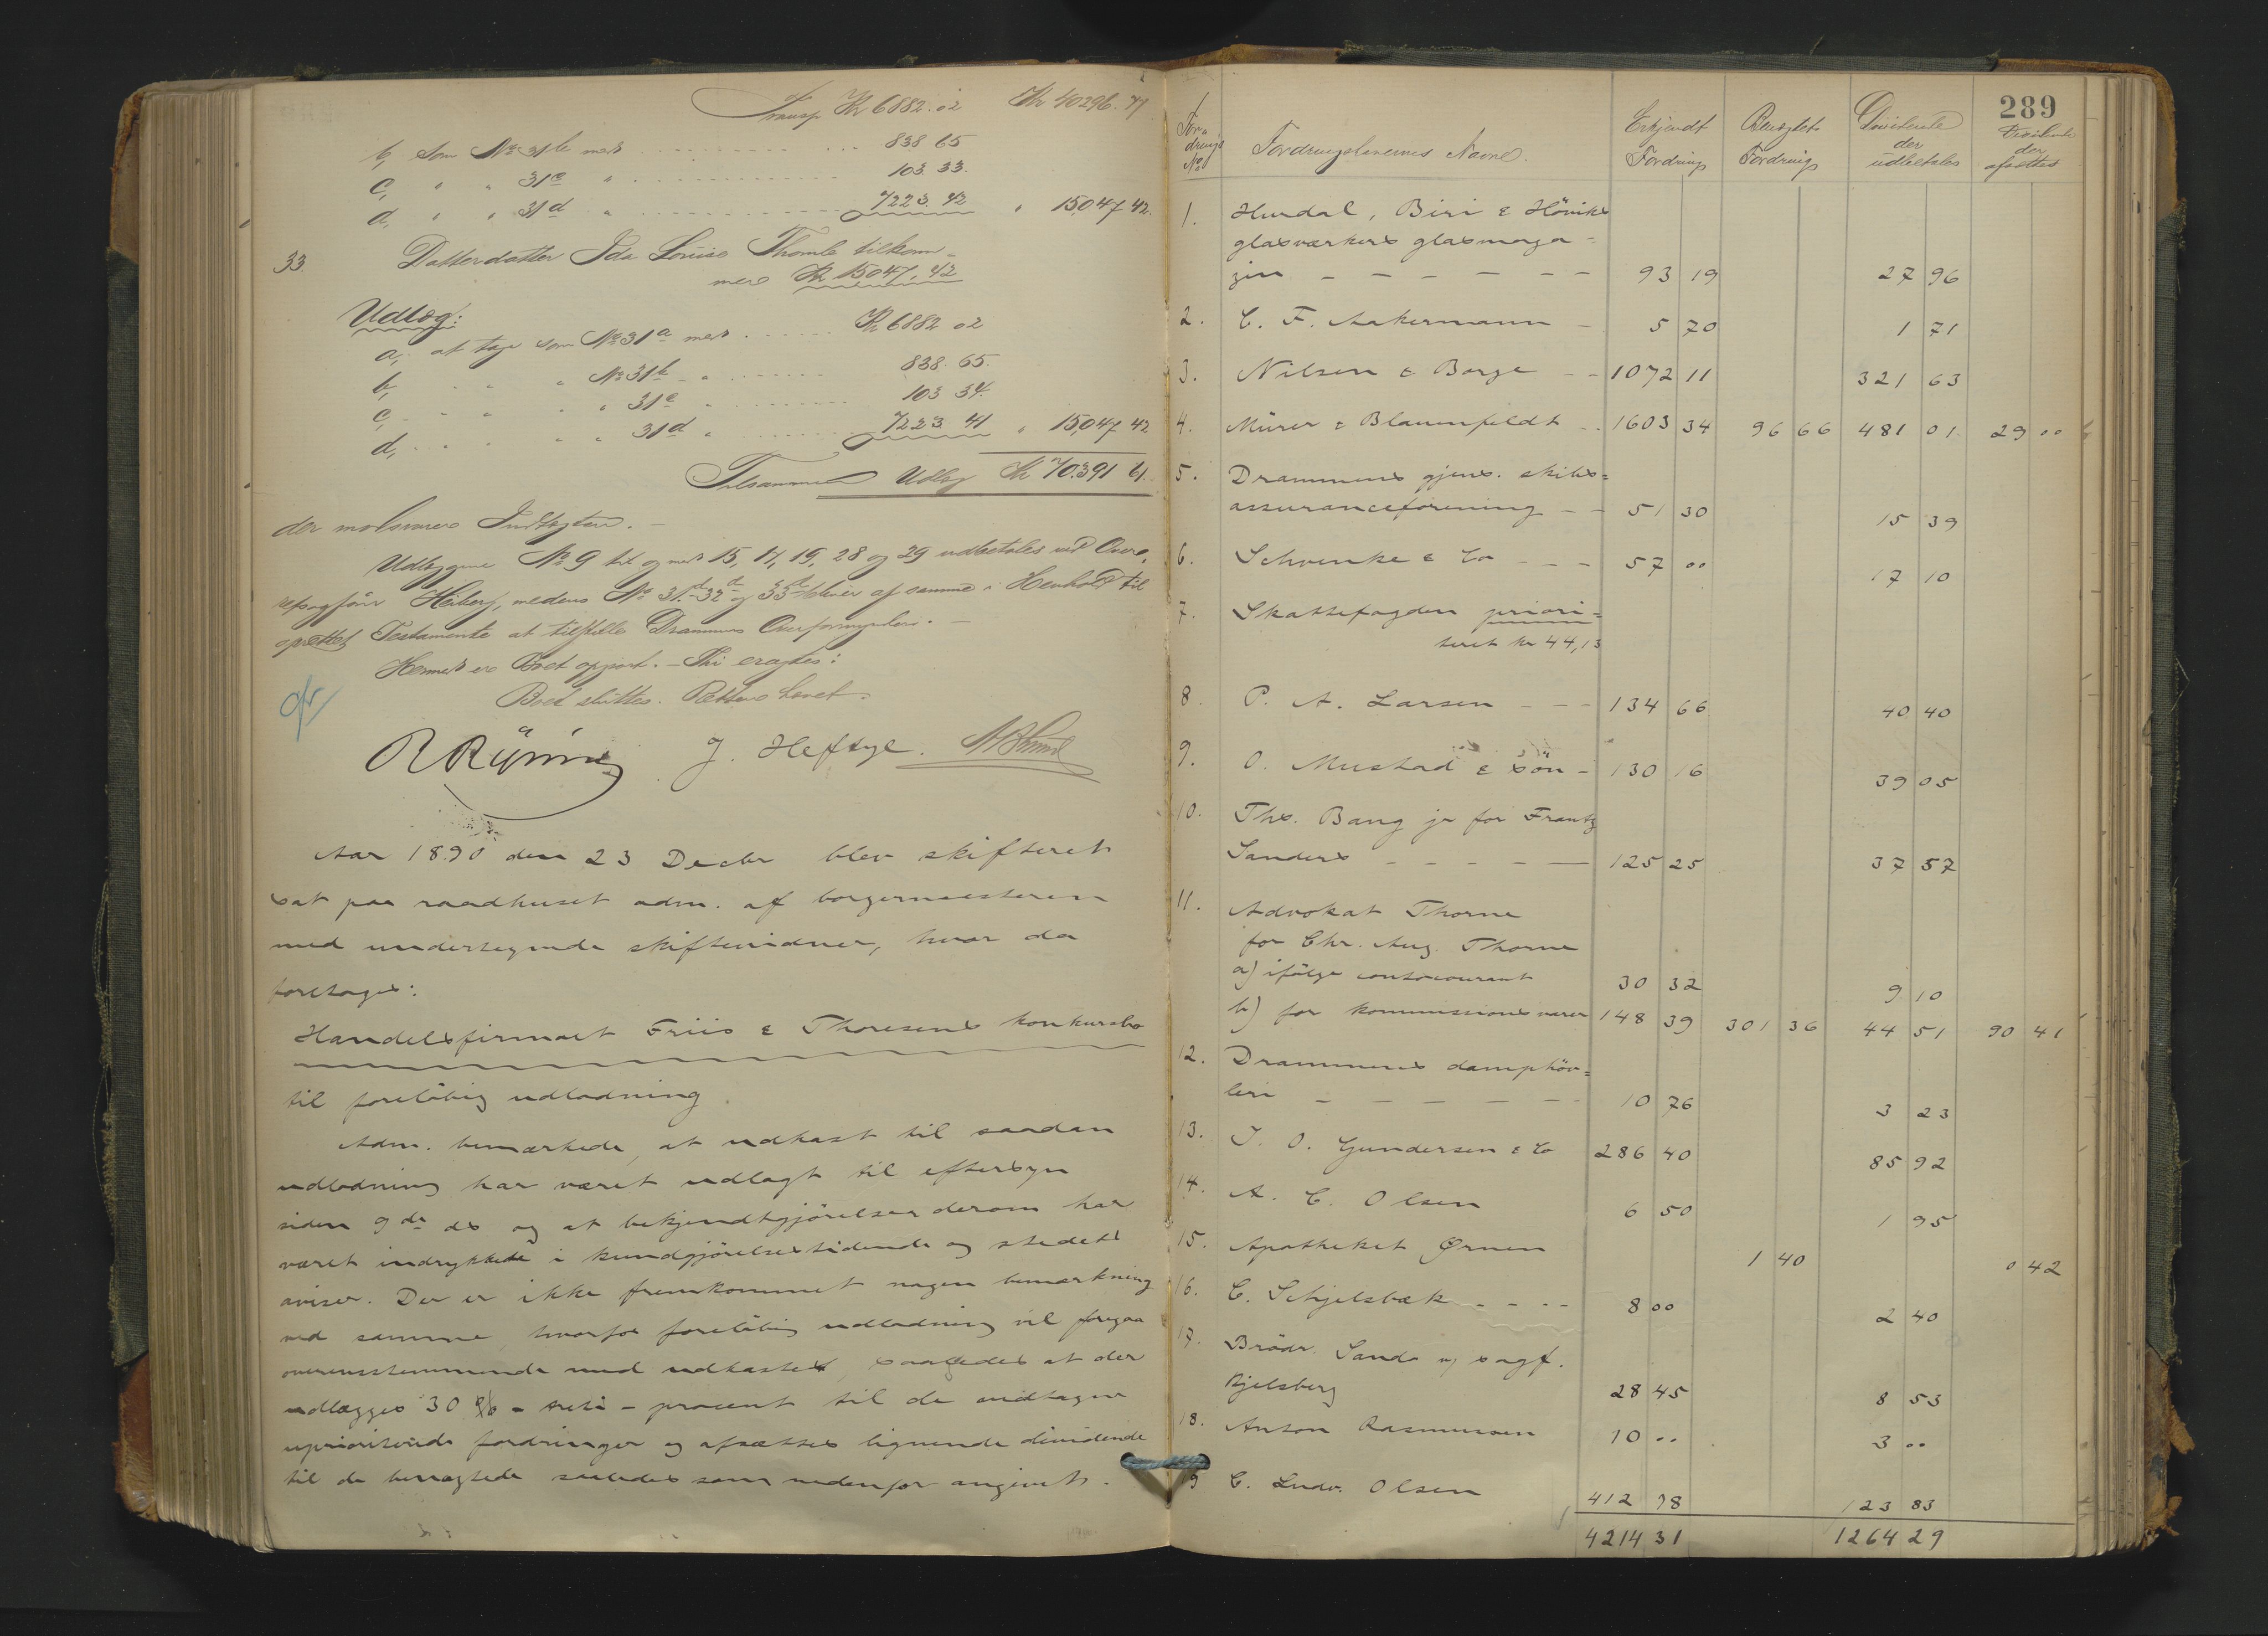 Transp. Kr 6882.02 Kr 40296.77
b, Som No 31b med 838 65
c, " " 31c " 103 33.
d, " " 31d " 7223.42 " 15047 42.
33. Datterdatter Ida Louise Thomle tilkom-
mer Kr 15047,42
Udlæg:
a, at tage som No 31a med Kr 6882 02
b, " " No 31b " 838.65.
c, " " " 31c " 103 34.
d, " " " 31d " 7223 41 " 15,047 42
Tilsammen Udlæg Kr 70.391 61.
der modsvarer Indtægten. —
Udlæggene No 9 til og med 15, 17, 19, 28 og 29 udbetales ved Overs
retssagfører Heiberg, medens No 31d 32d og 33d bliver af samme i Henhold til
oprettet Testamente at tilstille Drammens Overformynderi. —
Hermed er Boet opgjort. – Thi eragtes:
Boet sluttes. Retten hævet.
J. Heftye.
Aar 1890 den 23 Decbr blev skifteret
sat paa raadhuset adm. af borgermesteren
med undertegnede skiftevidner, hvor da
foretoges:
Handelsfirmaet Friis & Thoresens konkursbo
til foreløbig udlodning.
Adm. bemærkede, at udkast til saadan
udlodning har været udlagt til eftersyn
siden 9de ds og at bekjendtgjörelser derom har
været indrykkede i kundgjörelsestidende og stedets
aviser. Der er ikke fremkommet nogen bemærkning
ved samme, hvorfor foreløbig udlodning vil foregaa
overensstemmende med udkastet, saaledes at der
udlægges 30 % – treti – procent til de vedtagne
uprioriterede fordringer og afsættes lignende dividende
til de benægtede saaledes som nedenfor angivet.
289
For-
drings
No Fordringshavernes Navne. Erkjendt Fordring Benægtet Fordring Dividende der udbetales Dividende der afsættes
1. Hurdal, Biri & Höviks
glasværkers glasmaga-
zin – – – – – – 93 19 27 96
2. C. F. Aakermann – 5 70 1 71
3. Nilsen & Borge – – 1072 11 321 63
4. Mürer & Blauenfeldt – 1603 34 96 66 481 01 29 00
5. Drammens gjens. skibs=
assuranceforening – – 51 30 15 39
6. Schwenke & Co – – – 57 00 17 10
7. Skattefogden priori=
teret kr 44,13
8. P. A. Larsen – – – 134 66 40 40
9. O. Mustad & Sön – 130 16 39 05
10. Ths. Bang jr for Frantz
Sanders – – – – – 125 25 37 57
11. Advokat Thorne
for Chr. Aug. Thorne
a) ifölge contocourant 30 32 9 10
b) for kommissionsvarer 148 39 301 36 44 51 90 41
12. Drammens damphöv=
leri – – – – – – 10 76 3 23
13. J. O. Gundersen & Co 286 40 85 92
14. A. C. Olsen 6 50 1 95
15. Apotheket Ørnen 1 40 0 42
16. C. Schjelsbæk – – – – 8 00 2 40
17. Brödr. Sande v/ sagf.
Kjelsberg 28 45 8 53
18. Anton Rasmussen 10 00 3 00
19 C. Ludv. Olsen 412 78 123 83
4214 31 1264 29